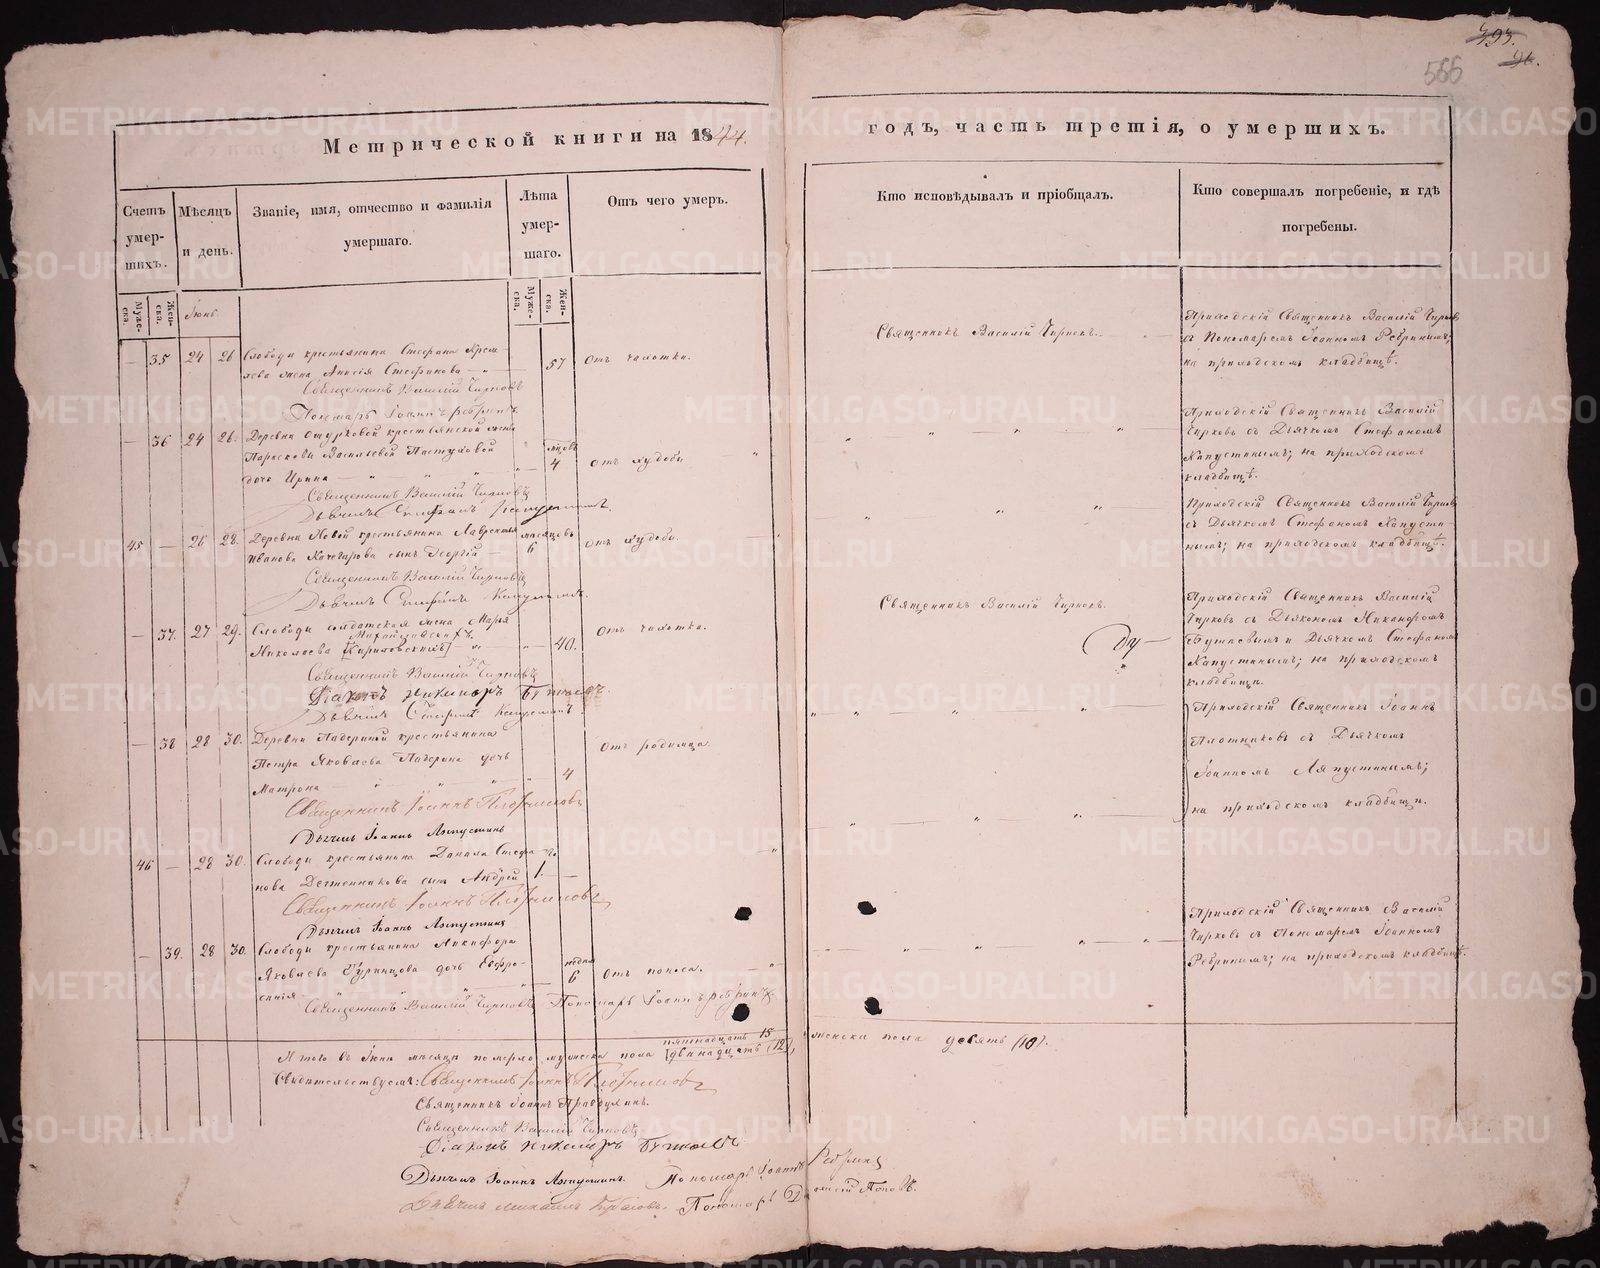 566
Метрической книги на 1844.
годъ, часть третія, о умершихъ.
Счетъ умер-шихъ.
Мѣсяцъ и день.
Званіе, имя, отчество и фамилія умершаго.
Лѣта умер-шаго.
Отъ чего умеръ.
Кто исповѣдывалъ и пріобщалъ.
Кто совершалъ погребеніе, и гдѣ погребены.
Муже-ска.
Жен-ска.
Муже-ска.
Жен-ска.
Іюнь
35 24 26 Слободы крестьянина Стефана
жена Анисія Стефанова 57 Отъ чахотки.
Священникъ Василій Чирковъ
Пономарь Іоаннъ Ребринъ
Священникъ Василій Чирковъ.
Приходскій Священникъ Василій Чирковъ
съ Пономаремъ Іоанномъ Ребринымъ;
на приходскомъ кладбищѣ.
36 24 26. Деревни Ошурковой крестьянской жены
Параскевы Васильевой Пастуховой
дочь Ирина 4 Отъ худобы
Священникъ Василій Чирковъ
Дьячекъ Стефанъ Капустинъ.
Приходскій Священникъ Василій
Чирковъ съ Дьячкомъ Стефаномъ
Капустинымъ; на приходскомъ
кладбищѣ.
45 26 28. Деревни Новой крестьянина Лаврентья
Иванова Качегарова сынъ Георгій месяцовъ 6 Отъ худобы.
Священникъ Василій Чирковъ
Дьячекъ Стефанъ Капустинъ.
Приходскій Священникъ Василій Чирковъ
съ Дьячкомъ Стефаномъ Капусти
нымъ; на приходскомъ кладбищѣ.
37. 27 29. Слободы солдатская жена Марья
Николаева [Кириловскихъ] 40. Отъ чахотки.
Священникъ Василій Чирковъ
Діаконъ Никаноръ
Дьячекъ Стефанъ Капустинъ.
Священникъ Василій Чирковъ.
Приходскій Священникъ Василій
Чирковъ съ Дьякономъ Никанфомъ
и Дьячкомъ Стефаномъ
Капустинымъ; на приходскомъ
кладбищи.
38 28 30. Деревни Падериной крестьянина
Петра Яковлева Падерина дочь
Матрона 4 Отъ родимца.
Священникъ Іоаннъ Плотниковъ
Дьячекъ Іоаннъ Ляпустинъ
Приходскій Священникъ Іоаннъ
Плотниковъ съ Дьячкомъ
Іоанномъ Ляпустинымъ;
на приходскомъ кладбищи.
46 28 30. Слободы крестьянина Данила Стефа
нова Дегтенникова сынъ Андрей 1.
Священникъ Іоаннъ Плотниковъ
Дьячекъ Іоаннъ Ляпустинъ
39. 28 30. Слободы крестьянина Никифора
Яковлева Бурянцова дочь Евфро-
синія 6 Отъ поноса.
Священникъ Василій Чирковъ Пономарь Іоаннъ Ребринъ
Приходскій Священникъ Василій
Чирковъ съ Пономаремъ Іоанномъ
Ребринымъ; на приходскомъ кладбищѣ.
Итого въ Іюнѣ мѣсяцѣ померло мужеска пола пятнадцать 15 [двѣнадцать (12)], женска пола девять (10).
Свидѣтельствуемъ: Священникъ Іоаннъ Плотниковъ
Священникъ Іоаннъ Правдухинъ.
Священникъ Василій Чирковъ
Діаконъ Никаноръ
Дьячекъ Іоаннъ Ляпустинъ. Пономарь Іоаннъ Ребринъ
Дьячекъ Михаилъ Пономарь Поповъ.
METRIKI.GASO-URAL.RU